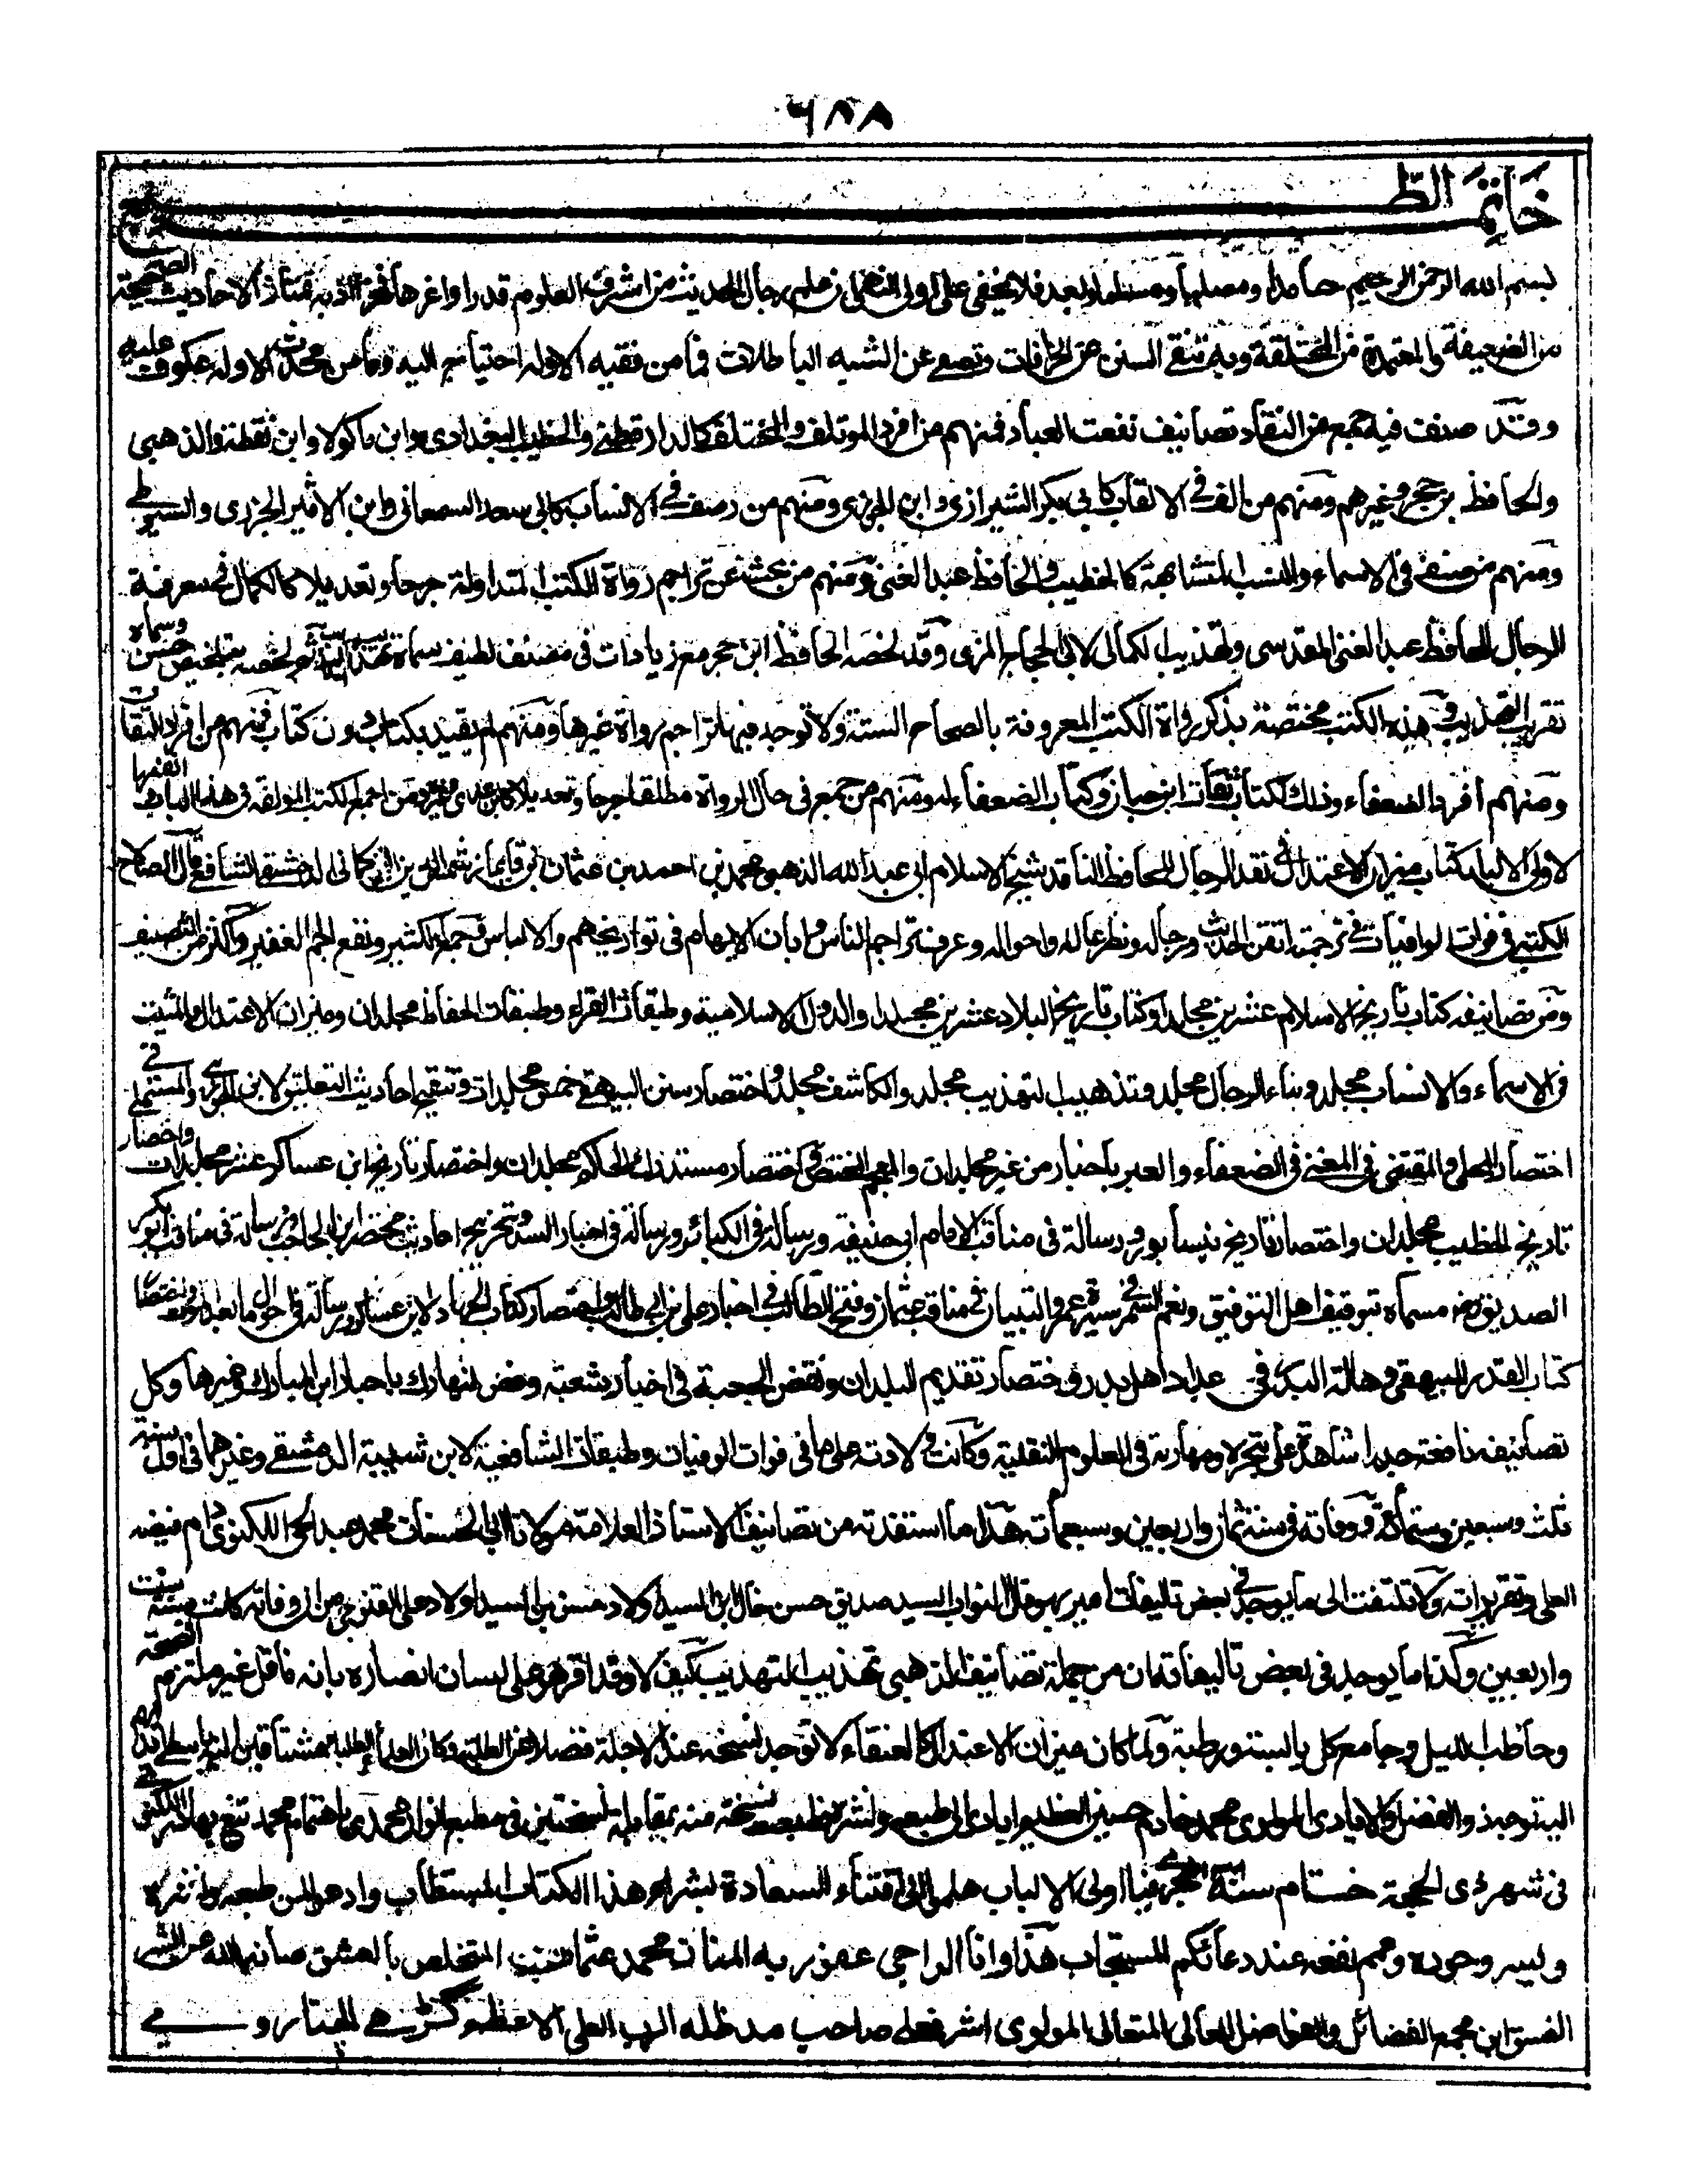 ٦٨٨
خاتمة الطبع
بسم الله الرحمن الرحيم حامدا ومصليا ومسلما وبعد فلا يخفى على اولى النهى ان علم رجال الحديث من اشرف العلوم قدرا واغرها فخرا اذ به تمتاز الاحاديث الصحيحة
من الضعيفة والمعتمدة من المختلقة وبه تنقى السنن عن الخرافات وتصفى عن الشبه الباطلات فما من فقيه الا وله احتياج اليه وما من محدث الا وله عكوف عليه
وقد صنف فيه جمع من النقاد تصانيف نفعت العباد فمنهم من افرد الموتلف والمختلف كالدارقطنى والخطيب البغدادى وابن ماكولا وابن نقطة والذهبى
والحافظ بن حجر وغيرهم ومنهم من الف فى الالقاب كابى بكر الشيرازى وابن الجوزى ومنهم من رصف فى الانساب كابى سعد السمعانى وابن الاثير الجزرى والسيوطى
ومنهم من صنف فى الاسماء والنسب المتشابهة كالخطيب والحافظ عبد الغنى ومنهم من بحث عن تراجم رواة الكتب المتداولة جرحا وتعديلا كالكمال فى معرفة
الرجال للحافظ عبد الغنى المقدسى وتهذيب الكمال لابى الحجاج المزى وقد لخصه الحافظ ابن حجر مع زيادات فى مصنف لطيف سماه تهذيب التهذيب ثم لخصه بتلخيص حسن وسماه
تقريب التهذيب وهذه الكتب مختصة بذكر رواة الكتب المعروفة بالصحاح الستة ولا توجد فيها تراجم رواة غيرها ومنهم لم يقيد بكتاب دون كتاب فمنهم من افرد الثقات
ومنهم افرد الضعفاء وذلك ككتاب ثقات ابن حبان وكتاب الضعفاء له ومنهم من جمع فى حال الرواة مطلقا جرحا وتعديلا كابن عدى وغيره ومن اجمع الكتب المؤلفة فى هذا الباب انفعها
لاولى الالباب كتاب ميزان الاعتدال فى نقد الرجال للحافظ الناقد شيخ الاسلام ابى عبد الله الذهبى محمد بن احمد بن عثمان بن قايماز شمس الدين التركمانى الدمشقى الشافعى قال الصلاح
الكتبى فى فوات الوافيات فى ترجمته اتقن الحديث ورجاله ونظر علله واحواله وعرف تراجم الناس وابان الابهام فى تواريخهم والالباس جمع الكثير ونفع الجم الغفير واكثر من التصنيف
ومن تصانيفه كتاب تاريخ الاسلام عشرين مجلدا وكتاب تاريخ البلاد عشرين مجلدا والدول الاسلامية وطبقات القراء وطبقات الحفاظ مجلدان وميزان الاعتدال والمثبت
فى الاسماء والانساب مجلد ونباء الرجال مجلد وتذهيب التهذيب مجلد والكاشف مجلد واختصار سنن البيهقى خمس مجلدات وتنقيح احاديث التعليق لابن الجوزى والمستحلى فى
اختصار المحلى والمقتنى فى المغنى فى الضعفاء والعبر باخبار من غبر مجلدان والمعجم المختص واختصار مستدرك الحاكم مجلدان واختصار تاريخ ابن عساكر عشر مجلدات واختصار
تاريخ الخطيب مجلدان واختصار تاريخ نيسابور ورسالة فى مناقب الامام ابى حنيفة ورسالة فى الكبائر ورسالة فى اخبار السد وتخريج احاديث مختصر ابن الحاجب ورسالة فى مناقب ابو بكر
الصديق رض مسماه بتوقيف اهل التوفيق ونعم السمر فى سيرة عمر والتبيان فى مناقب عثمان وفتح الطالب فى اخبار على بن ابى طالب واختصار كتاب الجهاد لابن عساكر ورسالة فى احوال ما بعد الموت واختصار
كتاب القدر للبيهقى وهالة البدر فى عداد اهل بدر واختصار تقويم البلدان ونقض الجعبة فى اخبار شعبة وقض نهارك باخبار ابن المبارك وغيرها وكل
تصانيفه نافعة جدا شاهدة على تبحره ومهارته فى العلوم النقلية وكانت ولادته على ما فى فوات الوفيات وطبقات الشافعية لابن شهبة الدمشقى وغيرهما فى اول سنة
ثلث وسبعين وستمائة ووفاته فى سنة ثمان واربعين وسبعمائة هذا ما استفدته من تصانيف الاستاذ العلامة مولانا ابى الحسنات محمد عبد الحى اللكنوى دام فيضه
العلى وتقريراته ولا تلتفت الى ما يوجد فى بعض تاليفات امير بهوفال النواب السيد صديق حسن خان ابن السيد اولاد حسن بن السيد اولاد على القنوجى من ان وفاته كانت سنة ست
واربعين وكذا ما يوجد فى بعض تاليفاته ان من جملة تصانيف الذهبى تهذيب التهذيب كيف لا وقد اقر هو على لسان انصاره بانه ناقل غير ملتزم الصحة
وحاطب الليل وجامع كل يابسة ورطبة ولما كان ميزان الاعتدال كالعنقاء لا توجد نسخته عند الاجلة فضلا عن الطلبة وكان العلماء والطلباء مشتاقين اليه
البتة توجه ذو الفضل والايادى المولوى محمد خادم حسين العظيم ابادى الى طبعه ونشره فطبعت نسخة منه بمقابلة نسختين فى مطبع انوار محمدى باهتمام محمد تيغ بهادر اللكنوى
فى شهر ذى الحجة ختام سنة الهجرية فيا اولى الالباب هلموا الى اقتناء السعادة بشراء هذا الكتاب المستطاب وادعوا لمن طبعه ونشره
ويسر وجوده وعمم نفعه عند دعائكم المستجاب هذا وانا الراجى عفو ربه المنان محمد عثمان المتخلص بالعشق صانه الله عن الشر
الفسق ابن مجمع الفضائل والفواضل المعالى المتعالى المولوى اشرف على صاحب مد ظله الرب العلى الاعظم